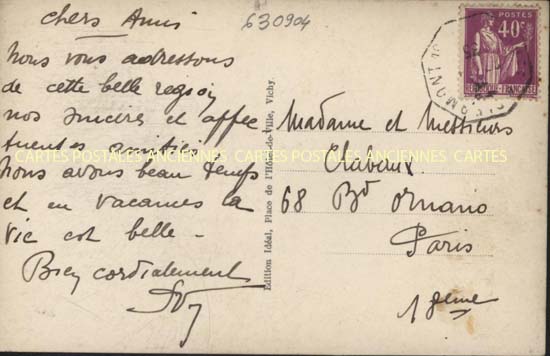 chers Amis
630904
Nous vous adressons
de cette belle region
nos sincères et affec
tueuses amitiés.
Nous avons beau temps
et en vacances la
vie est belle -
Bien cordialement
Edition Idéal, Place de l'Hôtel-de-Ville, Vichy.
POSTES
40c
Madame et Messieurs
68 Bd Ornano
Paris
18eme
CARTES POSTALES ANCIENNES CARTES POSTALES ANCIENNES CARTES